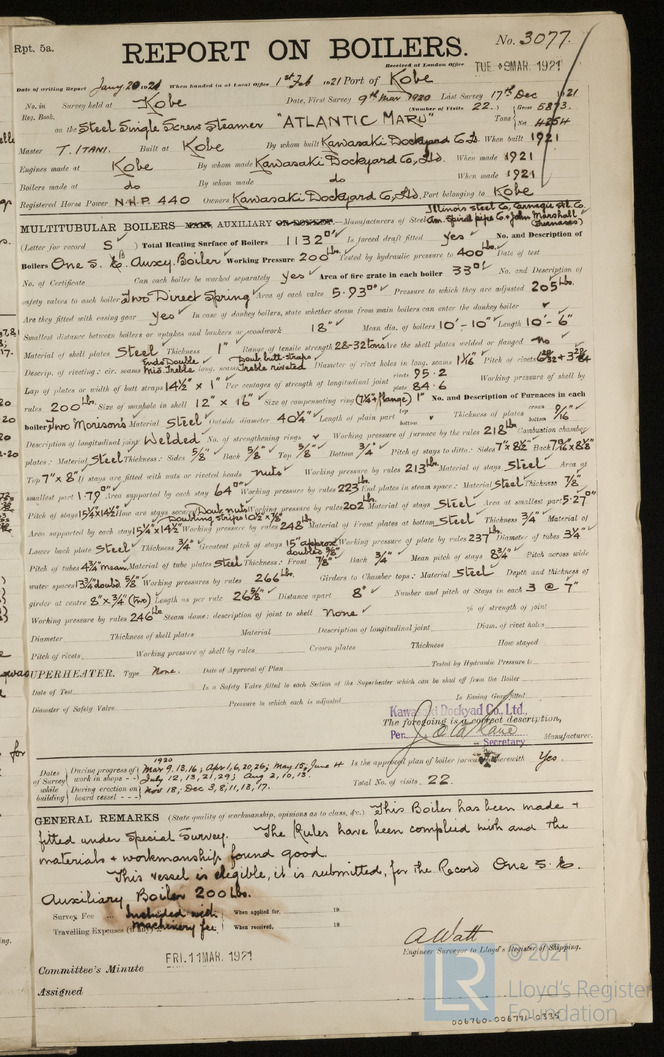 Rpt. 5a.
REPORT ON BOILERS.
No. 3077.
Received at London Office TUE. 9 MAR. 1921
Date of writing Report Jany 20 1921 When handed in at Local Office 1st Feb 1921 Port of Kobe
No. in Survey held at Kobe Date, First Survey 9th Mar 1920 Last Survey 17th Dec 1921
Reg. Book. (Number of Visits 22.) Gross 5873.
on the Steel Single Screw Steamer "ATLANTIC MARU" Tons Net 4254
Master T. ITANI. Built at Kobe By whom built Kawasaki Dockyard Co Ld. When built 1921
Engines made at Kobe By whom made Kawasaki Dockyard Co, Ltd. When made 1921
Boilers made at do By whom made do When made 1921
Registered Horse Power N.H.P. 440 Owners Kawasaki Dockyard Co, Ltd, Port belonging to Kobe
MULTITUBULAR BOILERS AUXILIARY Manufacturers of Steel Illinois steel Co, Carnegie stl. Co. Am. Spiral pipe Co & John Marshall (Furnaces)
(Letter for record S) Total Heating Surface of Boilers 1132 □' Is forced draft fitted yes No. and Description of
Boilers One S. E. Auxcy. Boiler Working Pressure 200 lbs Tested by hydraulic pressure to 400 lbs Date of test
No. of Certificate Can each boiler be worked separately yes Area of fire grate in each boiler 33 □' No. and Description of
safety valves to each boiler Two Direct Spring Area of each valve 5.93 □" Pressure to which they are adjusted 205 lbs.
Are they fitted with easing gear yes In case of donkey boilers, state whether steam from main boilers can enter the donkey boiler
Smallest distance between boilers or uptakes and bunkers or woodwork 18" Mean dia. of boilers 10'-10" Length 10'-6"
Material of shell plates Steel Thickness 1" Range of tensile strength 28-32 tons Are the shell plates welded or flanged no
Descrip. of riveting: cir. seams Ends Double Mid. Treble long. seams Doub butt straps Treble riveted Diameter of rivet holes in long. seams 1 1/16" Pitch of rivets
Lap of plates or width of butt straps 14½" x 1" Per centages of strength of longitudinal joint rivets 95.2 plate 84.6 Working pressure of shell by
rules 200 lbs. Size of manhole in shell 12" x 16" Size of compensating ring (7¼" flange) 1" No. and Description of Furnaces in each
boiler Two Morison's Material Steel Outside diameter 40¼" Length of plain part top bottom Thickness of plates crown bottom 9/16"
Description of longitudinal joint Welded No. of strengthening rings Working pressure of furnace by the rules 218 lbs Combustion chamber
plates: Material Steel Thickness: Sides 5/8" Back 5/8" Top 5/8" Bottom 3/4" Pitch of stays to ditto: Sides 7" x 8½" Back
Top 7" x 8" If stays are fitted with nuts or riveted heads nuts Working pressure by rules 213 lbs Material of stays Steel Area at
smallest part 1.79 □" Area supported by each stay 64 □" Working pressure by rules 223 End plates in steam space: Material Steel Thickness 7/8"
Pitch of stays 15¼"x14½" How are stays secured Doub nuts Doubling strips 10½" x 7/8" Working pressure by rules 202 lbs Material of stays Steel Area at smallest part 5.27 □"
Area supported by each stay 15¼"x14½" Working pressure by rules 248 lbs Material of Front plates at bottom Steel Thickness 3/4" Material of
Lower back plate Steel Thickness 3/4" Greatest pitch of stays 15" approx doubled 5/8" Working pressure of plate by rules 237 lbs Diameter of tubes 3¼"
Pitch of tubes 4¾" mean Material of tube plates Steel Thickness: Front 7/8" Back 3/4" Mean pitch of stays 8¾" Pitch across wide
water spaces 13¾" doubd. 5/8" Working pressures by rules 266 lbs. Girders to Chamber tops: Material Steel Depth and thickness of
girder at centre 8" x ¾" (two) Length as per rule 26 5/8" Distance apart 8" Number and pitch of Stays in each 3 @ 7"
Working pressure by rules 246 lbs Steam dome: description of joint to shell None % of strength of joint
Diameter Thickness of shell plates Material Description of longitudinal joint Diam. of rivet holes
Pitch of rivets Working pressure of shell by rules Crown plates Thickness How stayed
SUPERHEATER. Type None. Date of Approval of Plan Tested by Hydraulic Pressure to
Date of Test Is a Safety Valve fitted to each Section of the Superheater which can be shut off from the Boiler
Diameter of Safety Valve Pressure to which each is adjusted Is Easing Gear fitted
Kawasaki Dockyad Co., Ltd.,
The foregoing is a correct description,
Per. Secretary Manufacturer.
Dates of Survey while building
During progress of work in shops - - 1920 Mar 9, 13, 16; Apr 1, 6, 20, 26; May 15; June 4 July 12, 13, 21, 29; Aug 2, 10, 13.
During erection on board vessel - - - Nov 18; Dec 3, 8, 11, 13, 17.
Is the approved plan of boiler forwarded herewith Yes.
Total No. of visits 22.
GENERAL REMARKS (State quality of workmanship, opinions as to class, &c.) This Boiler has been made &
fitted under Special Survey. The Rules have been complied with and the
materials & workmanship found good.
This vessel is eligible, it is submitted, for the Record One S. E.
Auxiliary Boiler 200 lbs.
Survey Fee Included with When applied for, 19
Travelling Expenses (if any) Machinery fee When received, 19
A Watt
Engineer Surveyor to Lloyd's Register of Shipping.
Committee's Minute FRI. 11 MAR. 1921
Assigned
© 2021
LR
Lloyd's Register
Foundation
006760-006771-0335